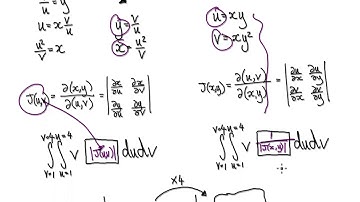 u/u = y
u = x v/u
u²/v = x
y = v/u
x = u²/v
u = xy
v = xy²
J(u,v) = ∂(x,y)/∂(u,v) = | ∂x/∂u ∂x/∂v ; ∂y/∂u ∂y/∂v |
J(x,y) = ∂(u,v)/∂(x,y) = | ∂u/∂x ∂u/∂y ; ∂v/∂x ∂v/∂y |
∫_{v=1}^{v=4} ∫_{u=1}^{u=4} v |J(u,v)| du dv
∫_{v=1}^{v=4} ∫_{u=1}^{u=4} v 1/|J(x,y)| du dv
x4